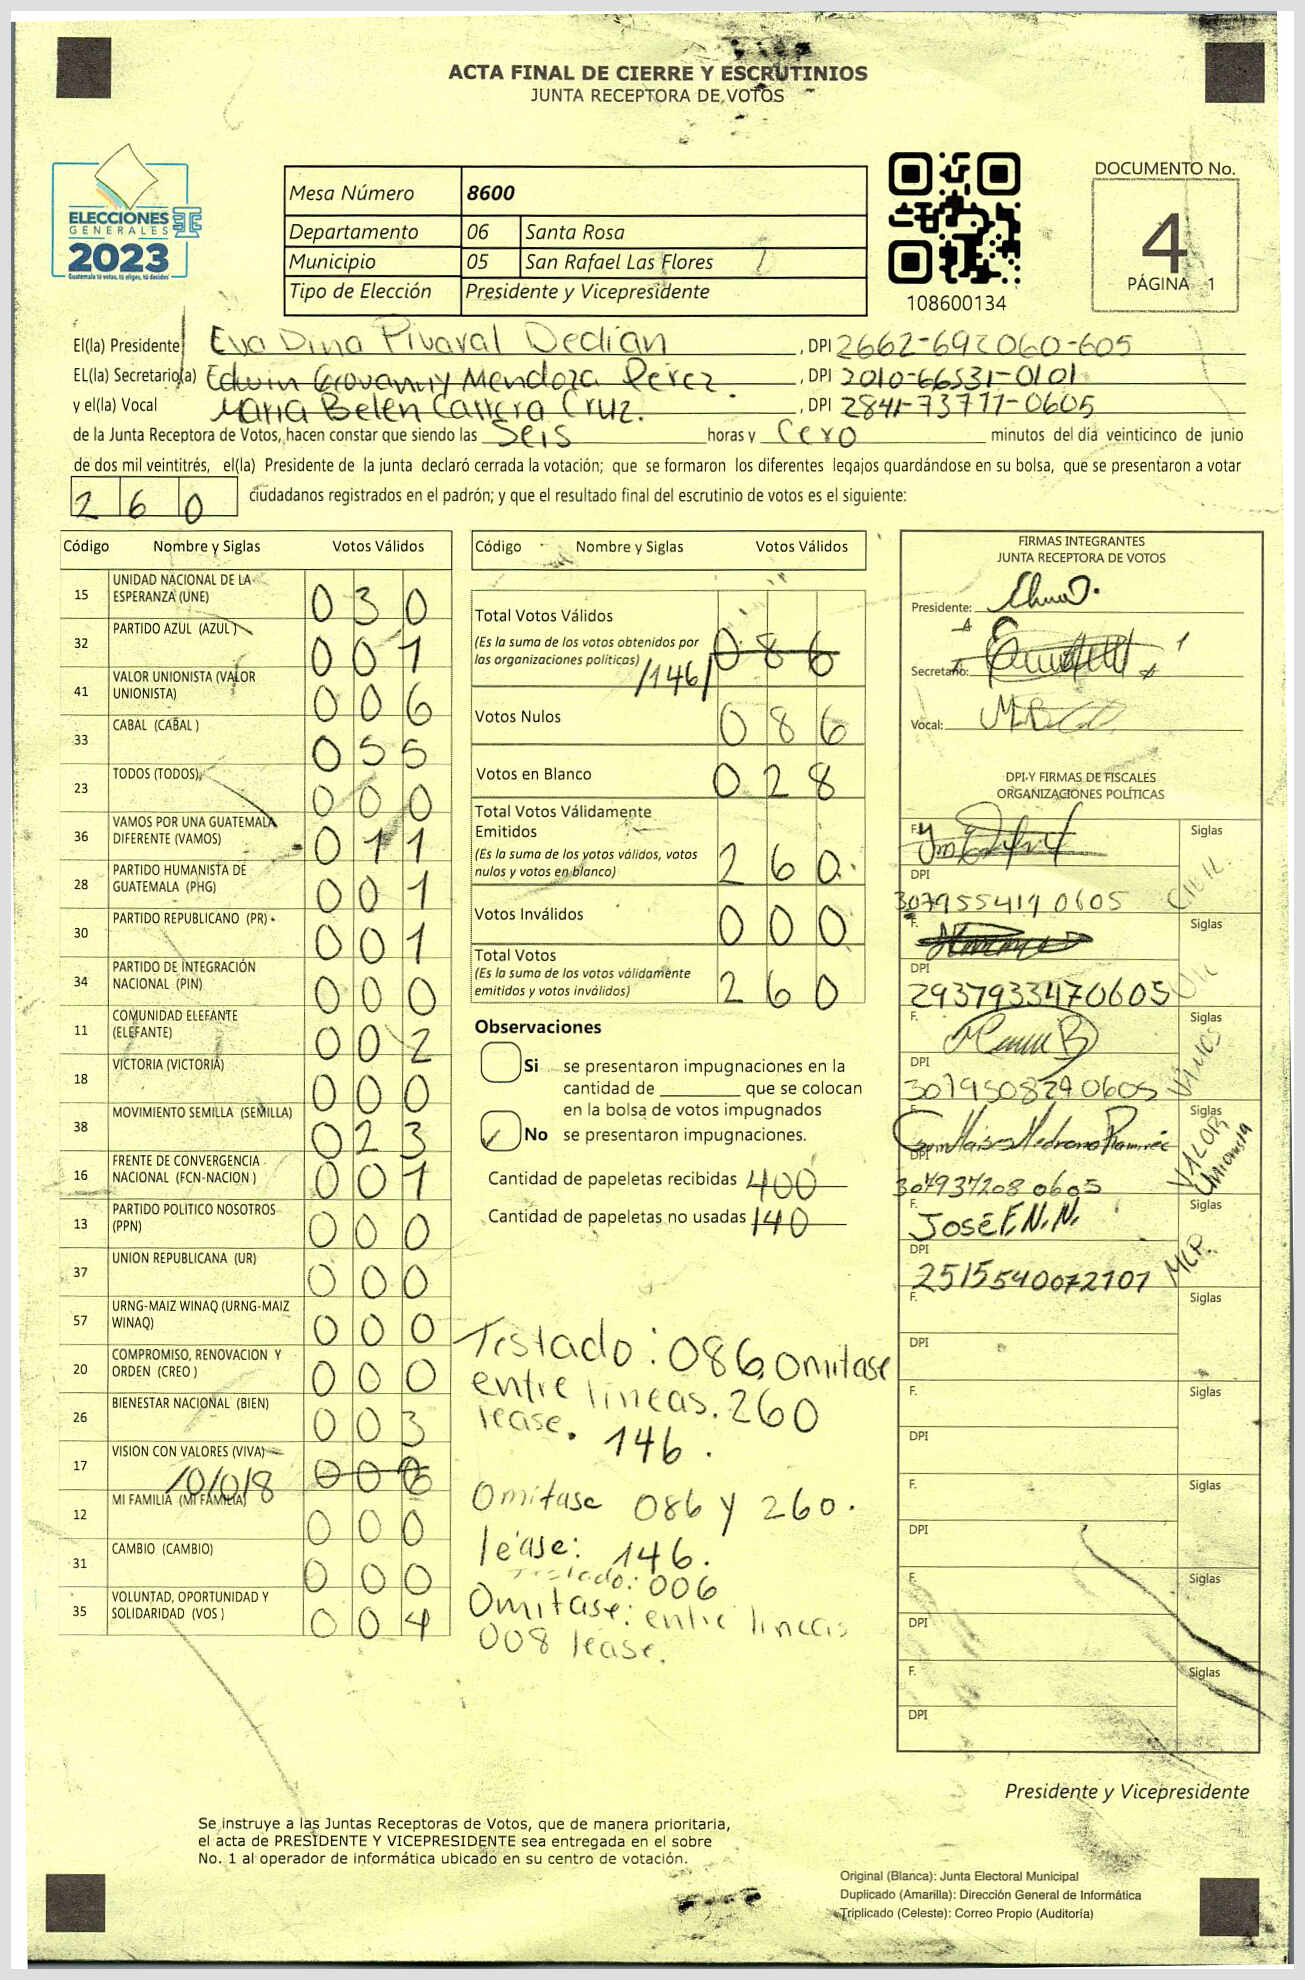 ACTA FINAL DE CIERRE Y ESCRUTINIOS
JUNTA RECEPTORA DE VOTOS
ELECCIONES
GENERALES
2023
Guatemala tú votas, tú eliges, tú decides
Mesa Número 8600
Departamento 06 Santa Rosa
Municipio 05 San Rafael Las Flores
Tipo de Elección Presidente y Vicepresidente
108600134
DOCUMENTO No.
4
PÁGINA 1
El(la) Presidente Eva Dina Pivaral Dedian, DPI 2662-692060-605
EL(la) Secretario(a) Edwin Giovanny Mendoza Perez., DPI 2010-66531-0101
y el(la) Vocal Maria Belén Carrera Cruz., DPI 2841-73777-0605
de la Junta Receptora de Votos, hacen constar que siendo las Seis horas y Cero minutos del día veinticinco de junio
de dos mil veintitrés, el(la) Presidente de la junta declaró cerrada la votación; que se formaron los diferentes legajos guardándose en su bolsa, que se presentaron a votar
260 ciudadanos registrados en el padrón; y que el resultado final del escrutinio de votos es el siguiente:
Código Nombre y Siglas Votos Válidos
15 UNIDAD NACIONAL DE LA ESPERANZA (UNE) 030
32 PARTIDO AZUL (AZUL) 001
41 VALOR UNIONISTA (VALOR UNIONISTA) 006
33 CABAL (CABAL ) 055
23 TODOS (TODOS) 000
36 VAMOS POR UNA GUATEMALA DIFERENTE (VAMOS) 011
28 PARTIDO HUMANISTA DE GUATEMALA (PHG) 001
30 PARTIDO REPUBLICANO (PR) 001
34 PARTIDO DE INTEGRACIÓN NACIONAL (PIN) 000
11 COMUNIDAD ELEFANTE (ELEFANTE) 002
18 VICTORIA (VICTORIA) 000
38 MOVIMIENTO SEMILLA (SEMILLA) 023
16 FRENTE DE CONVERGENCIA NACIONAL (FCN-NACION ) 001
13 PARTIDO POLITICO NOSOTROS (PPN) 000
37 UNION REPUBLICANA (UR) 000
57 URNG-MAIZ WINAQ (URNG-MAIZ WINAQ) 000
20 COMPROMISO, RENOVACION Y ORDEN (CREO ) 000
26 BIENESTAR NACIONAL (BIEN) 003
17 VISION CON VALORES (VIVA) /0/0/8 006
12 MI FAMILIA (MI FAMILIA) 000
31 CAMBIO (CAMBIO) 000
35 VOLUNTAD, OPORTUNIDAD Y SOLIDARIDAD (VOS ) 004
Código Nombre y Siglas Votos Válidos
Total Votos Válidos
(Es la suma de los votos obtenidos por
las organizaciones políticas) /146/ 086
Votos Nulos 086
Votos en Blanco 028
Total Votos Válidamente
Emitidos
(Es la suma de los votos válidos, votos
nulos y votos en blanco) 260.
Votos Inválidos 000
Total Votos
(Es la suma de los votos válidamente
emitidos y votos inválidos) 260
Observaciones
Si se presentaron impugnaciones en la
cantidad de ________ que se colocan
en la bolsa de votos impugnados
No se presentaron impugnaciones.
Cantidad de papeletas recibidas 400
Cantidad de papeletas no usadas 140
Testado: 086, omitase
entre lineas. 260
lease. 146.
Omitase 086 y 260.
léase: 146.
Testado: 006
Omitase: entre lineas
008 lease.
FIRMAS INTEGRANTES
JUNTA RECEPTORA DE VOTOS
Presidente:
Secretario:
Vocal:
DPI Y FIRMAS DE FISCALES
ORGANIZACIONES POLÍTICAS
F. Siglas
DPI
3079554190605
F. Siglas
DPI
2937933470605
F. Siglas VAMOS
DPI
3079508290605
F. Siglas VALOR Unionista
DPI
3049372080605
F. José F. N. N. Siglas MLP.
DPI
2515540072101
F. Siglas
DPI
F. Siglas
DPI
F. Siglas
DPI
F. Siglas
DPI
F. Siglas
DPI
Presidente y Vicepresidente
Se instruye a las Juntas Receptoras de Votos, que de manera prioritaria,
el acta de PRESIDENTE Y VICEPRESIDENTE sea entregada en el sobre
No. 1 al operador de informática ubicado en su centro de votación.
Original (Blanca): Junta Electoral Municipal
Duplicado (Amarilla): Dirección General de Informática
Triplicado (Celeste): Correo Propio (Auditoría)